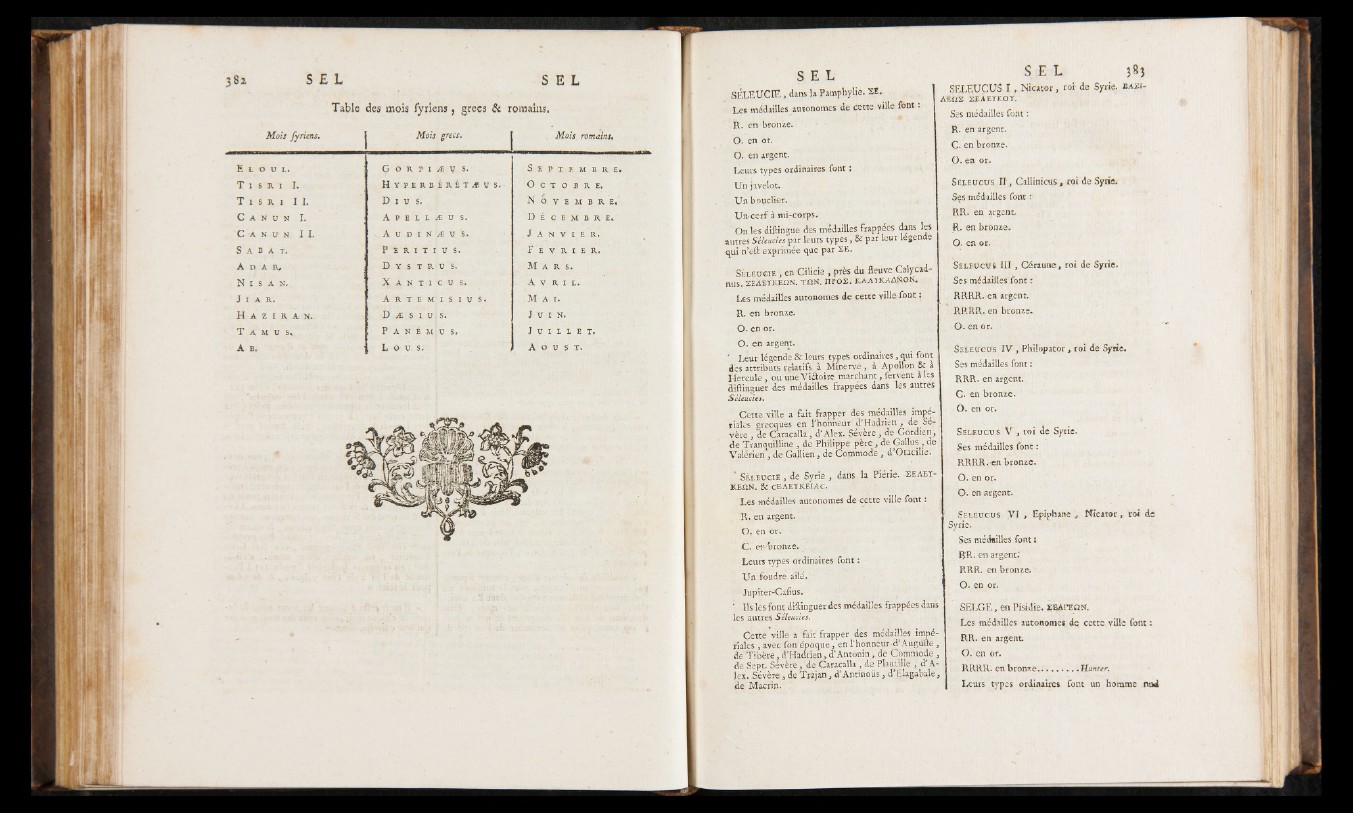 382 SEL SEL
Table des mois ſyriens, grecs & romains.
Mois ſyriens. Mois grecs. Mois romains.
ELOUL. GORPIÆUS. SEPTEMBRE.
TISRI I. HYPERBÉRÉTÆUS. OCTOBRE.
TISRI II. DIUS. NOVEMBRE.
CANUN I. APELLÆUS. DÉCEMBRE.
CANUN II. AUDINÆUS. JANVIER.
SABAT. PERITIUS. FEVRIER.
ADAR. DYSTRUS. MARS.
NISAN. XANTICUS. AVRIL.
JIAR. ARTEMISIUS. MAI.
HAZIRAN. DÆSIUS. JUIN.
TAMUS. PANEMUS. JUILLET.
AB. LOUS. AOUST.
SEL
SÉLEUCIE, dans la Pamphylie. ΣΕ.
Les médailles autonomes de cette ville ſont :
R. en bronze.
O. en or.
O. en argent.
Leurs types ordinaires ſont :
Un javelot.
Un bouclier.
Un cerf à mi-corps.
On les diſtingue des médailles frappées dans les
autres Séleucies par leurs types, & par leur légende
qui n'eſt exprimée que par ΣΕ.
SÉLEUCIE, en Cilicie, près du fleuve Calycad-
nus. ΣΕΛΕΥΚΕΩΝ. ΤΩΝ. ΠΡΟΣ. ΚΑΛΥΚΑΔΝΟΝ.
Les médailles autonomes de cette ville ſont :
R. en bronze.
O. en or.
O. en argent.
Leur légende & leurs types ordinaires, qui ſont
des attributs relatifs à Minerve, à Apollon & à
Hercule, ou une Victoire marchant, ſervent à les
diſtinguer des médailles frappées dans les autres
Séleucies.
Cette ville a fait frapper des médailles impé-
riales grecques en l'honneur d'Hadrien, de Sé-
vère, de Caracalla, d'Alex. Sévère, de Gordien,
de Tranquilline, de Philippe père, de Gallus, de
Valérien, de Gallien, de Commode, d'Otacilie.
SÉLEUCIE, de Syrie, dans la Piérie. ΣΕΛΕΥ-
ΚΕΩΝ. & CΕΛΕΥΚΕΙΑC.
Les médailles autonomes de cette ville ſont :
R. en argent.
O. en or.
C. en bronze.
Leurs types ordinaires ſont :
Un foudre ailé.
Jupiter-Caſius.
Ils les font diſtinguer des médailles frappées dans
les autres Séleucies.
Cette ville a fait frapper des médailles impé-
riales, avec ſon époque, en l'honneur d'Auguſte,
de Tibère, d'Hadrien, d'Antonin, de Commode,
de Sept. Sévère, de Caracalla, de Plautille, d'A-
lex. Sévère, de Trajan, d'Antinoüs, d'Elagabale,
de Macrin.
SEL 383
SELEUCUS I, Nicator, roi de Syrie. ΒΑΣΙ-
ΛΕΩΣ ΣΕΛΕΥΚΟΥ.
Ses médailles ſont :
R. en argent.
C. en bronze.
O. en or.
SELEUCUS II, Callinicus, roi de Syrie.
Ses médailles ſont :
RR. en argent.
R. en bronze.
O. en or.
SELEUCUS III, Céraune, roi de Syrie.
Ses médailles ſont :
RRRR. en argent.
RRRR. en bronze.
O. en or.
SELEUCUS IV, Philopator, roi de Syrie.
Ses médailles ſont :
RRR. en argent.
C. en bronze.
O. en or.
SELEUCUS V, roi de Syrie.
Ses médailles ſont :
RRRR. en bronze.
O. en or.
O. en argent.
SELEUCUS VI, Epiphane, Nicator, roi de
Syrie.
Ses médailles ſont :
RR. en argent.
RRR. en bronze.
O. en or.
SELGE, en Piſidie. ΣΕΛΓΕΩΝ.
Les médailles autonomes de cette ville ſont :
RR. en argent.
O. en or.
RRRR. en bronze......... Hunter.
Leurs types ordinaires ſont un homme nud